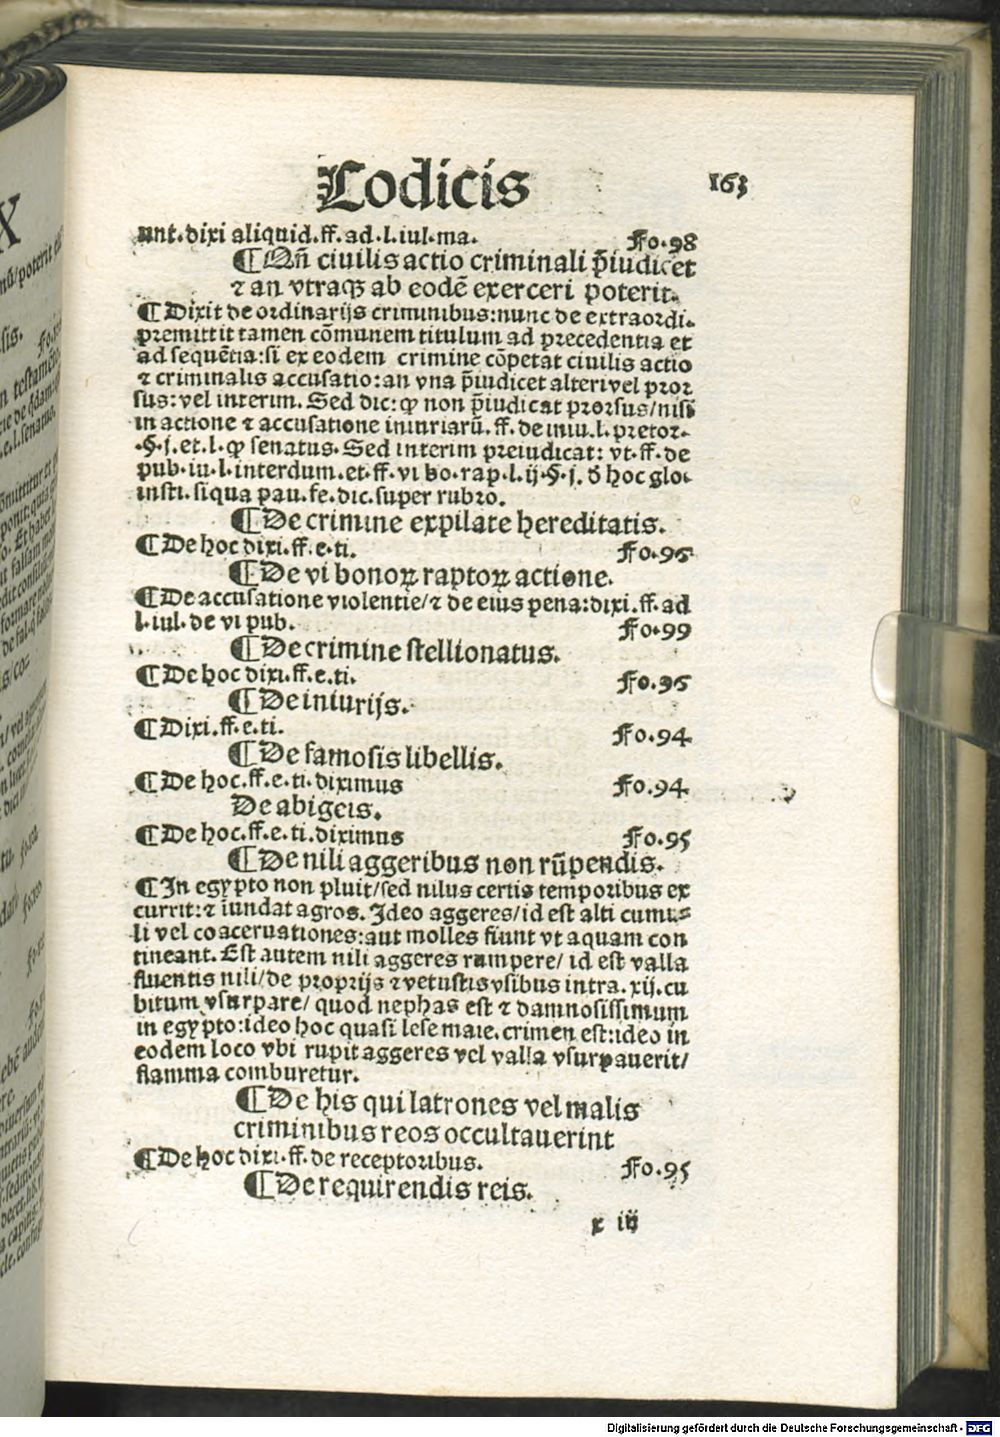 Codicis 163
unt.dixi aliquid.ff.ad.l.iul.ma. Fo.98
¶Qñ ciuilis actio criminali p̃iudicet
⁊ an vtraqꝫ ab eodẽ exerceri poterit.
¶Dixit de ordinarijs criminibus:nunc de extraordi.
premittit tamen cõmunem titulum ad precedentia et
ad sequẽtia:si ex eodem crimine cõpetat ciuilis actio
⁊ criminalis accusatio:an vna p̃iudicet alteri vel pror
sus:vel interim. Sed dic:ꝙ non p̃iudicat prorsus/nisi
in actione ⁊ accusatione iniuriarũ.ff.de iniu.l.pretor.
.§.j.et.l.ꝙ senatus. Sed interim preiudicat: vt.ff.de
pub.iu.l.interdum.et.ff.vi bo.rap.l.ij.§.j. d̃ hoc glo.
insti.si qua pau.fe.dic.super rubro.
¶De crimine expilate hereditatis.
¶De hoc dixi.ff.e.ti. Fo.96
¶De vi bonoꝝ raptoꝝ actione.
¶De accusatione violentie/⁊ de eius pena:dixi.ff.ad
l.iul.de vi pub. Fo.99
¶De crimine stellionatus.
¶De hoc dixi.ff.e.ti. Fo.96
¶De iniurijs.
¶Dixi.ff.e.ti. Fo.94
¶De famosis libellis.
¶De hoc.ff.e.ti.diximus Fo.94
De abigeis.
¶De hoc.ff.e.ti.diximus Fo.95
¶De nili aggeribus non rũpendis.
¶In egypto non pluit/sed nilus certis temporibus ex
currit:⁊ iundat agros. Ideo aggeres/id est alti cumu⸗
li vel coaceruationes:aut molles fiunt vt aquam con
tineant. Est autem nili aggeres rumpere/ id est valla
fluentis nili/de proprijs ⁊ vetustis vsibus intra.xij.cu
bitum vsurpare/ quod nephas est ⁊ damnosissimum
in egypto:ideo hoc quasi lese maie.crimen est:ideo in
eodem loco vbi rupit aggeres vel valla vsurpauerit/
flamma comburetur.
¶De his qui latrones vel malis
criminibus reos occultauerint
¶De hoc dixi.ff.de receptoribus. Fo.95
¶De requirendis reis.
x iij
Digitalisierung gefördert durch die Deutsche Forschungsgemeinschaft - DFG